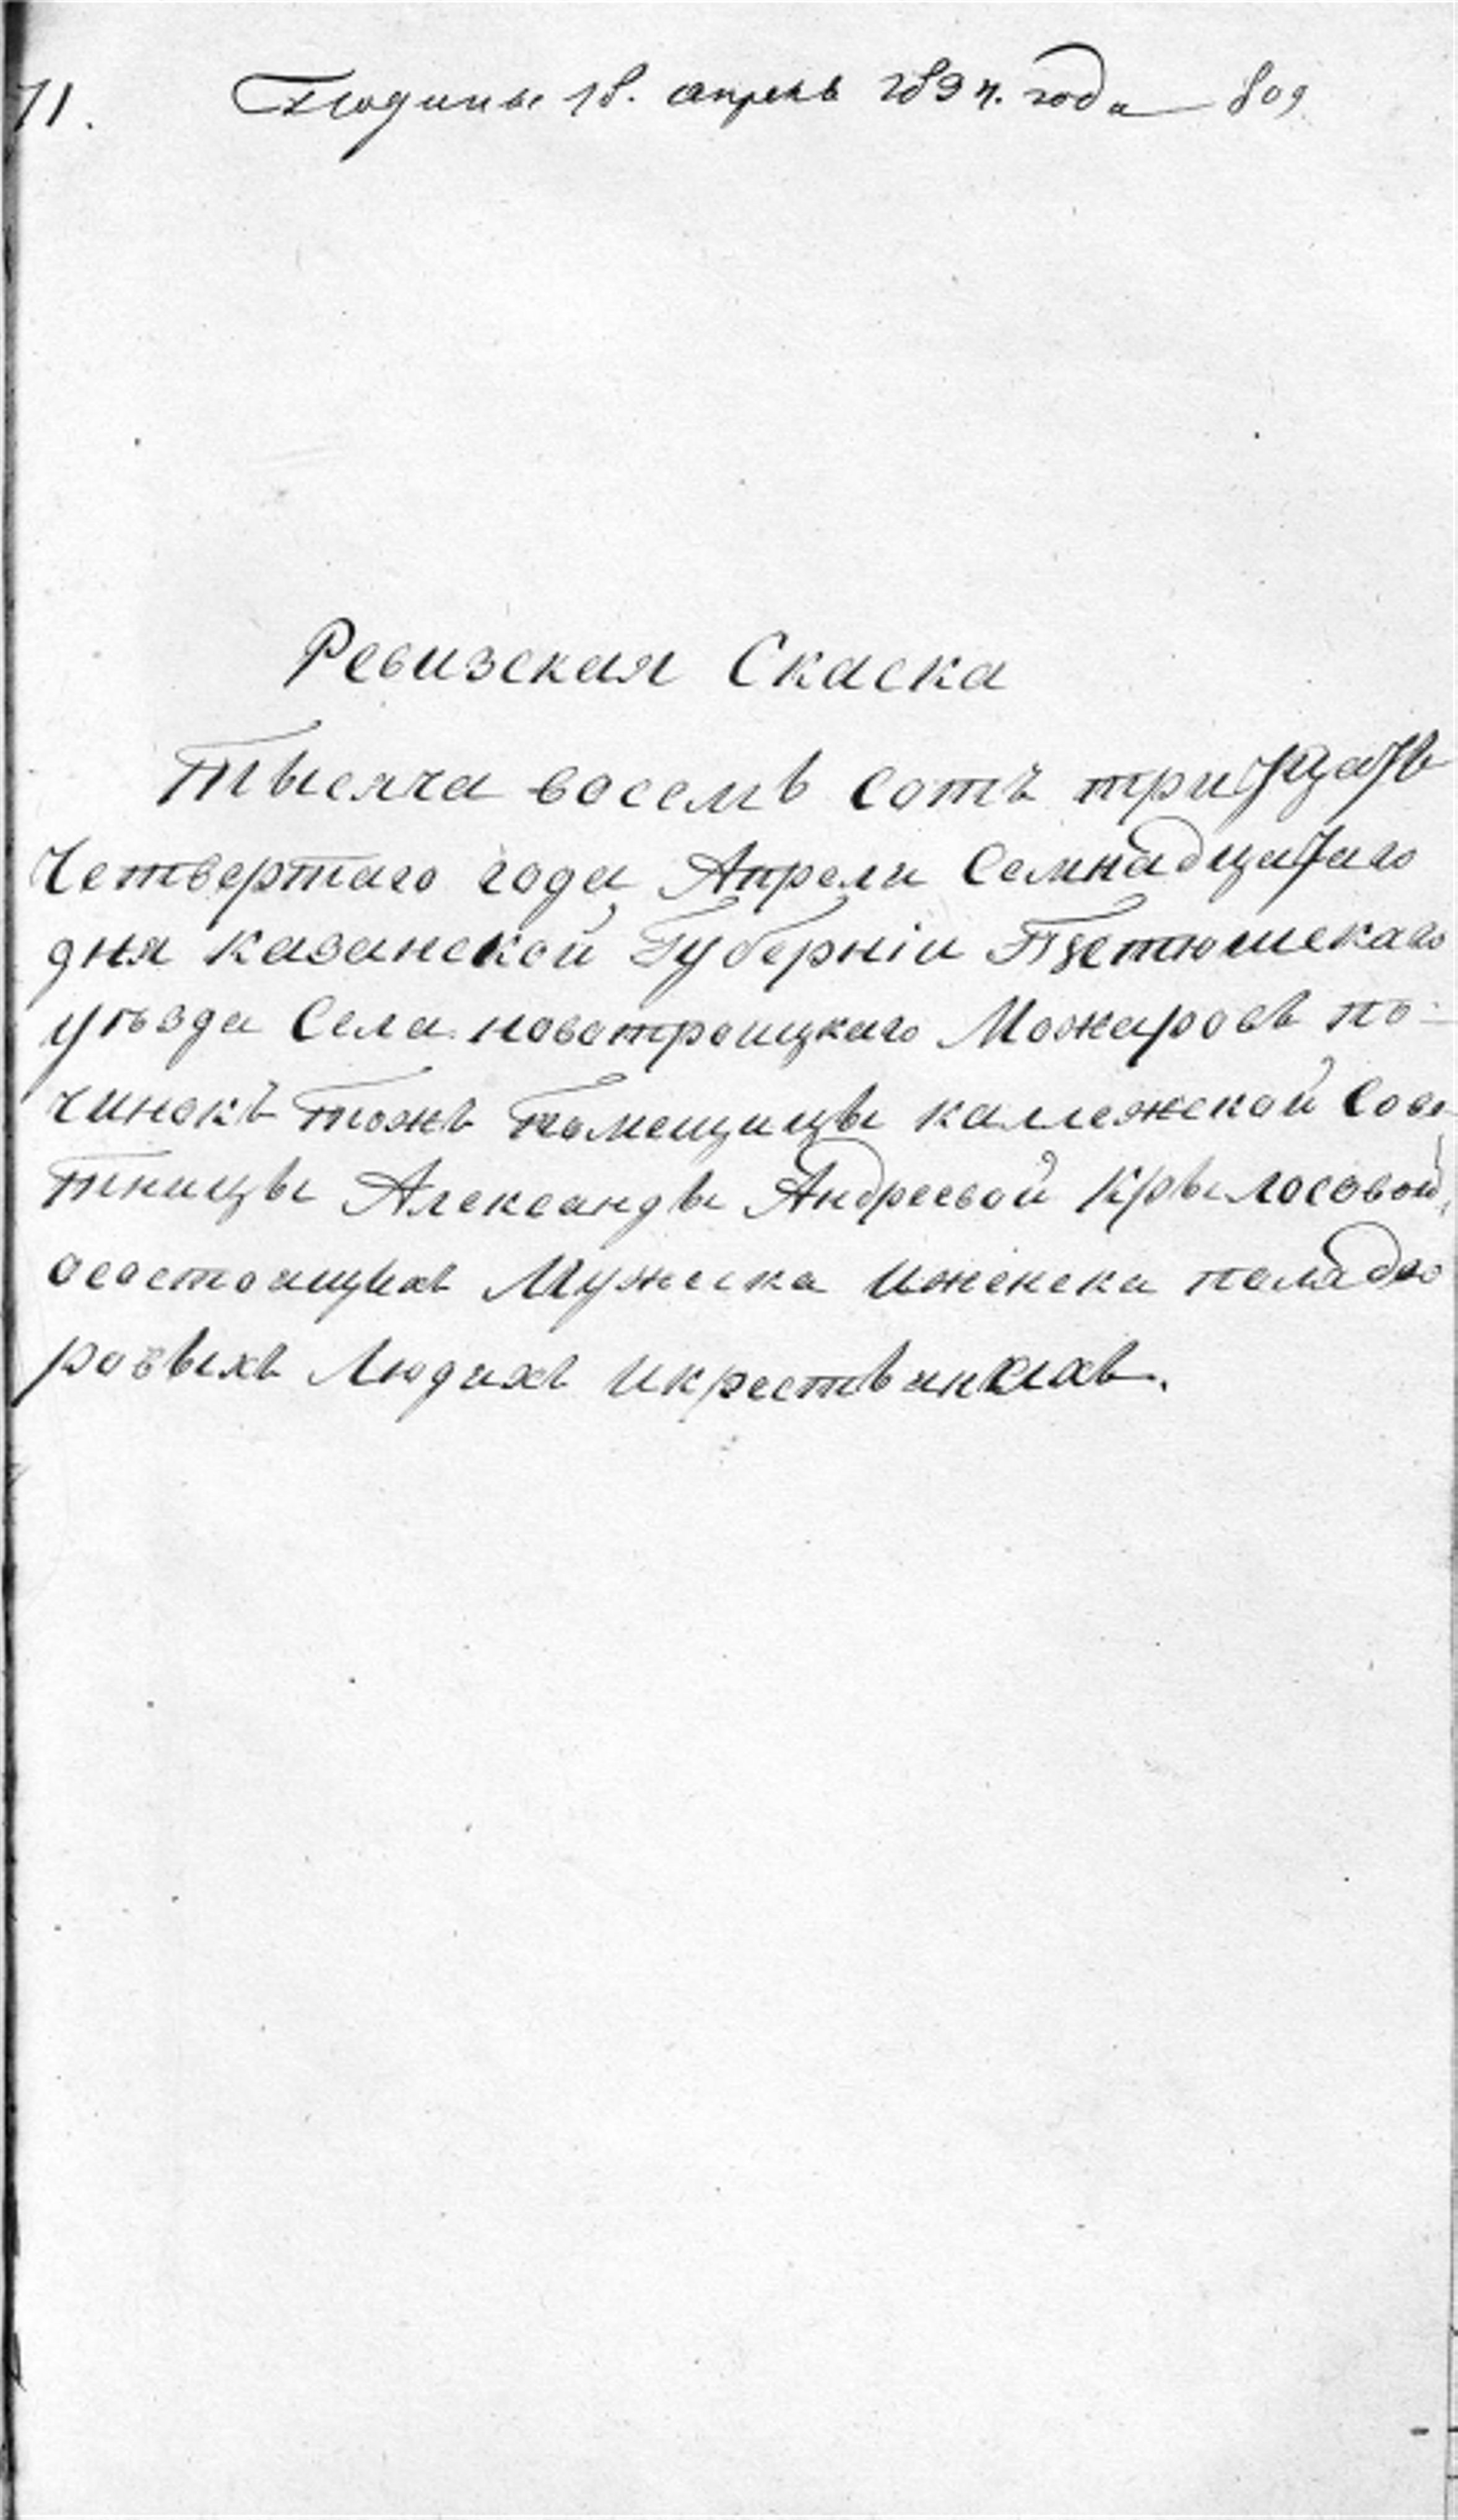 71. Подины 18. апреля 1834. года 809
Ревизская Скаска
Тысяча восемь сотъ тридцать
четвертаго года Апреля Семнадцатаго
дня казанской Губерніи Тетюшскаго
уѣзда Села новотроицкаго Можаровъ по-
чинокъ тожъ Помещицы калежской Сове-
тницы Александы Андреевой Крылосовой,
осостоящихъ Мужеска иженска пола дво
ровыхъ людяхъ икрестьянахъ.